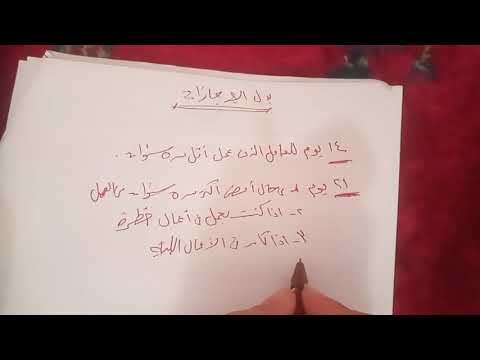 بدل الاجازات
١٤ يوم للعامل الذي عمل أقل من ٥ سنوات.
٢١ يوم ١- بحال أمضى أكثر من ٥ سنوات بالعمل
٢- اذا كنت تعمل في أعمال خطرة
٣- اذا كان في الأعمال